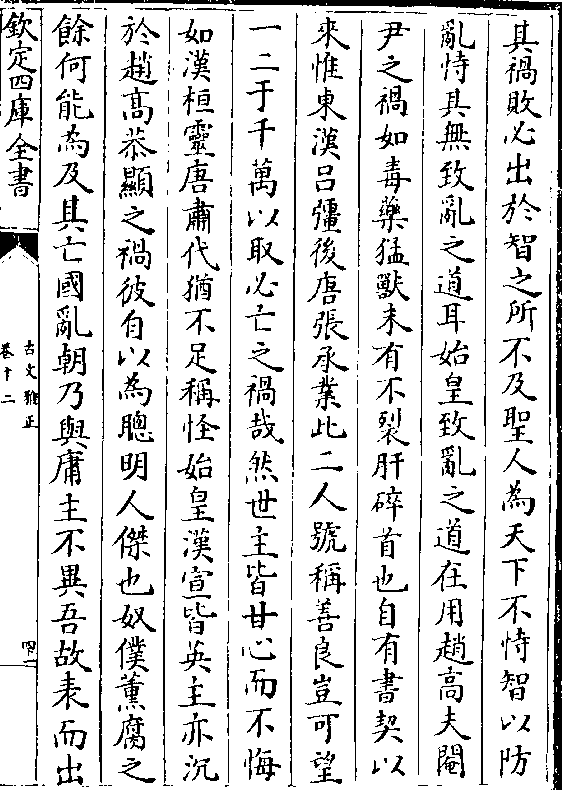 其禍敗必出於智之所不及聖人為天下不恃智以防
亂恃其無致亂之道耳始皇致亂之道在用趙高夫閹
尹之禍如毒藥猛獸未有不裂肝碎首也自有書契以
來惟東漢吕彊後唐張承業此二人號稱善良豈可望
一二于千萬以取必亡之禍哉然世主皆甘心而不悔
如漢桓靈唐肅代猶不足稱怪始皇漢宣皆英主亦沉
於趙高恭顯之禍彼自以為聰明人傑也奴僕薰腐之
餘何能為及其亡國亂朝乃與庸主不異吾故表而出
欽定四庫全書
古文雅正
卷十二